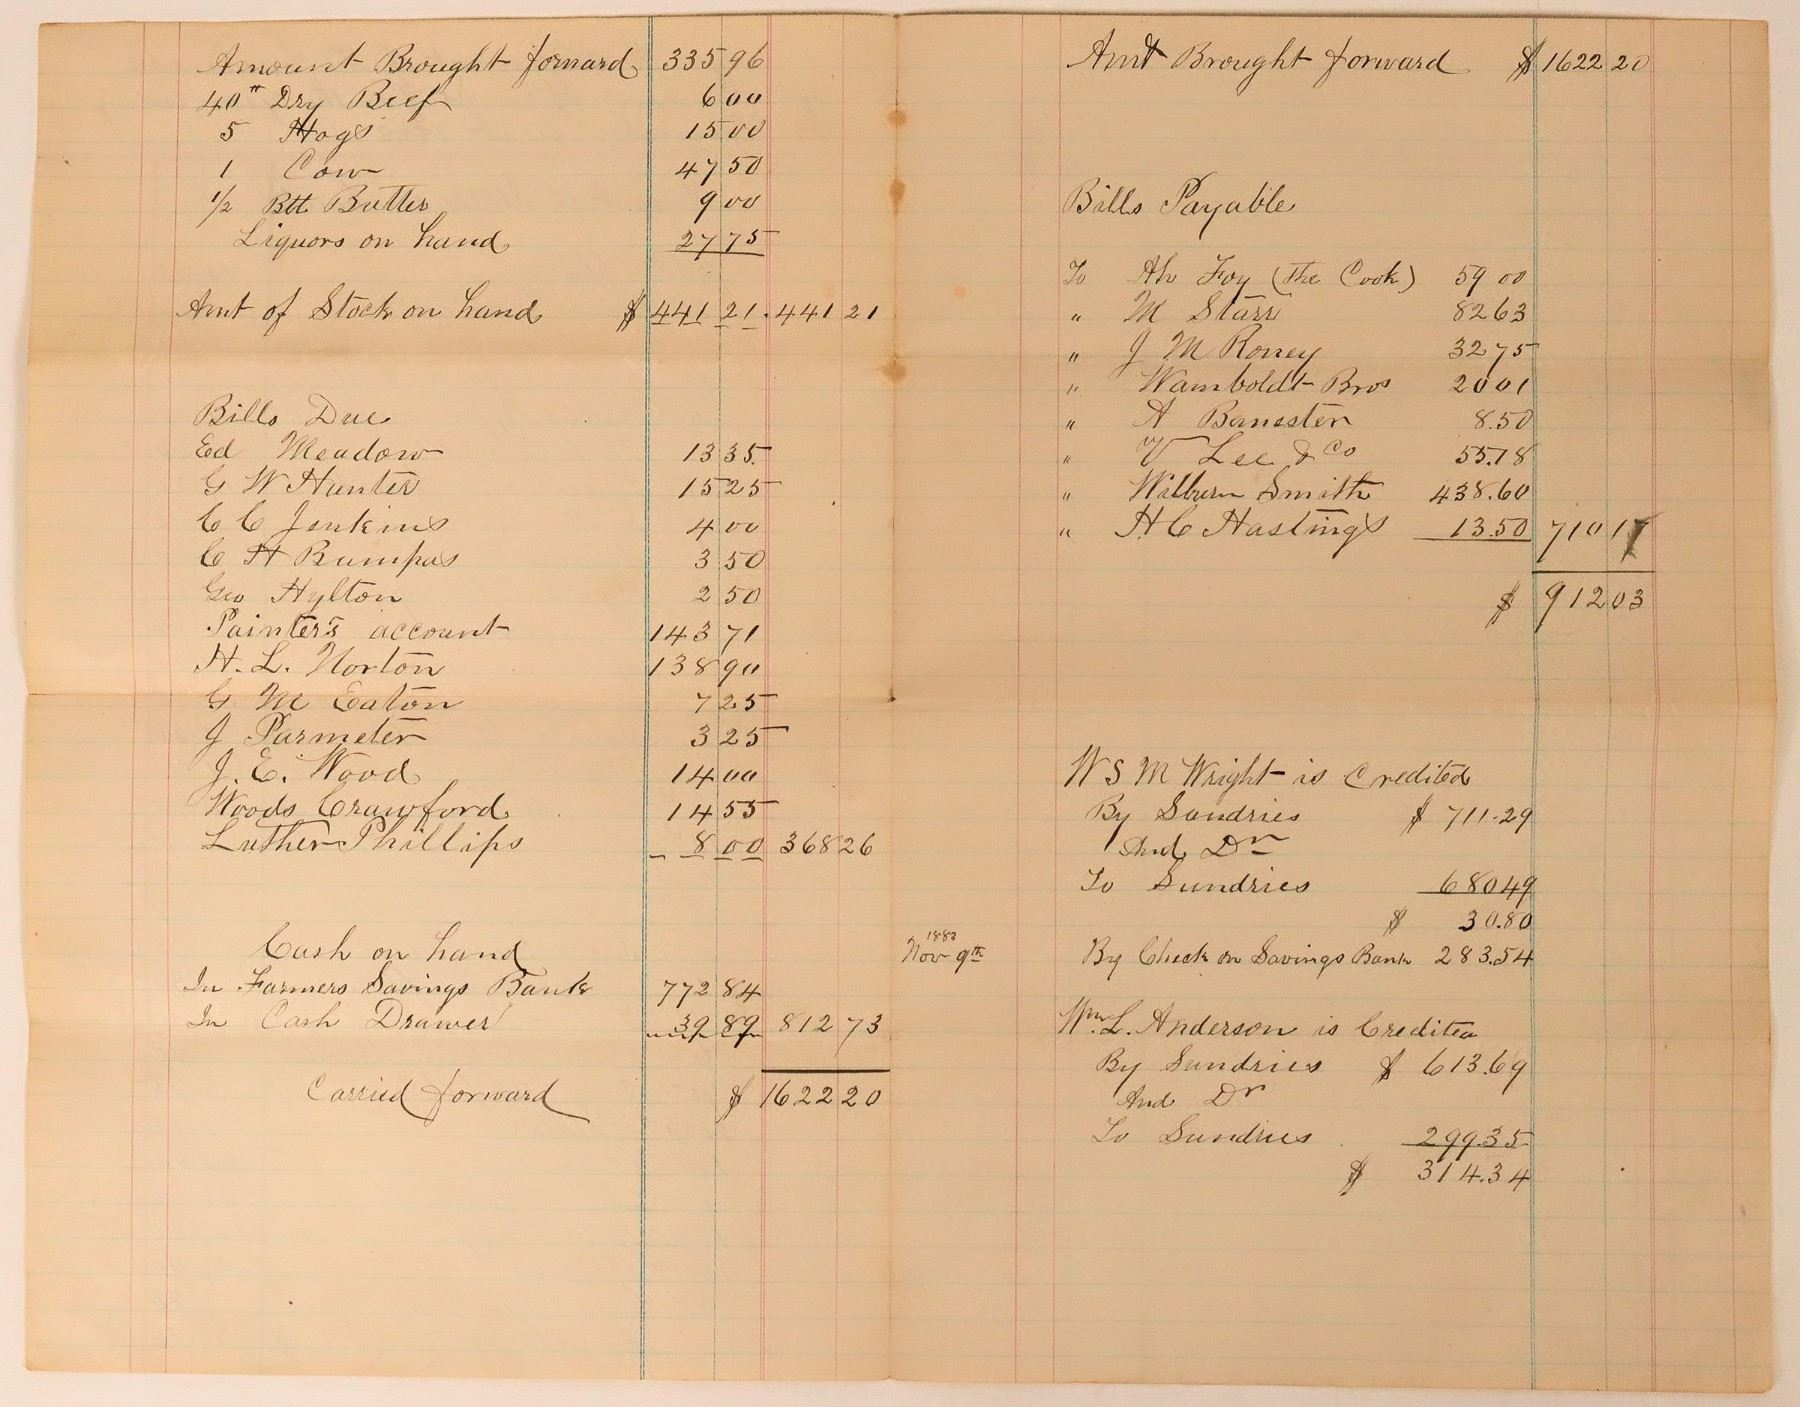 Amount Brought forward 335 96
40" Dry Beef 6 00
5 Hogs 15 00
1 Cow 47 50
1/2 Btt Butter 9 00
Liquors on hand 27 75
Amt of Stock on hand $ 441 21. 441 21
Bills Due
Ed Meadow 13 35
G W Hunter 15 25
C C Jenkins 4 00
C H Bumpas 3 50
Geo Hylton 2 50
Painter's account 143 71
H. L. Norton 138 90
G M Eaton 7 25
J Parmeter 3 25
J. E. Wood 14 00
Woods Crawford 14 55
Luther Phillips 8 00 368 26
Cash on hand
In Farmers Savings Bank 772 84
In Cash Drawer 39 89 812 73
Carried forward $ 1622 20
Amt Brought forward $ 1622 20
Bills Payable
To Ah Foy (The Cook) 59 00
" M Starr 82 63
" J M Roney 32 75
" Wamboldt Bros 20 01
" A Banester 8.50
" V Lee & Co 55.18
" Wilburn Smith 438.60
" H C Hastings 13.50 710 17
$ 912 03
W S M Wright is Credited
By Sundries $ 711.29
And Dr
To Sundries 680 49
$ 30.80
1883
Nov 9th By Check on Savings Bank 283.54
Wm. L. Anderson is Credited
By Sundries $ 613.69
And Dr
To Sundries 299.35
$ 314.34